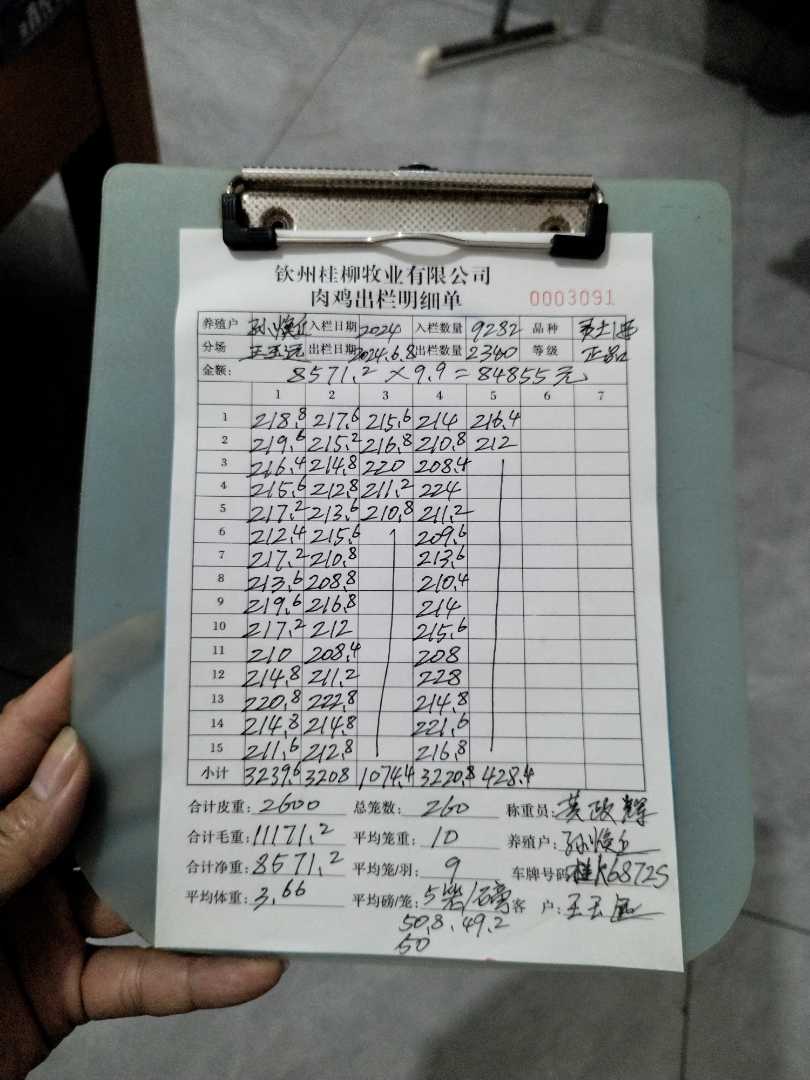 钦州桂柳牧业有限公司
肉鸡出栏明细单 0003091
养殖户 孙焕丘 入栏日期 2024 入栏数量 9282 品种
分场 出栏日期 2024.6.8 出栏数量 2340 等级 正品
金额: 8571.2×9.9=84855元
1 2 3 4 5 6 7
1 218.8 217.6 215.6 214 216.4
2 219.6 215.2 216.8 210.8 212
3 216.4 214.8 220 208.4
4 215.6 212.8 211.2 224
5 217.2 213.6 210.8 211.2
6 212.4 215.6 209.6
7 217.2 210.8 213.6
8 213.6 208.8 210.4
9 219.6 216.8 214
10 217.2 212 215.6
11 210 208.4 208
12 214.8 211.2 228
13 220.8 222.8 214.8
14 214.8 214.8 221.6
15 211.6 212.8 216.8
小计 3239.6 3208 1074.4 3220.8 428.4
合计皮重: 2600 总笼数: 260 称重员: 黄政辉
合计毛重: 11171.2 平均笼重: 10 养殖户: 孙焕丘
合计净重: 8571.2 平均笼/羽: 9 车牌号码 桂K6872S
平均体重: 3.66 平均磅/笼: 客 户:
50.8、49.2
50